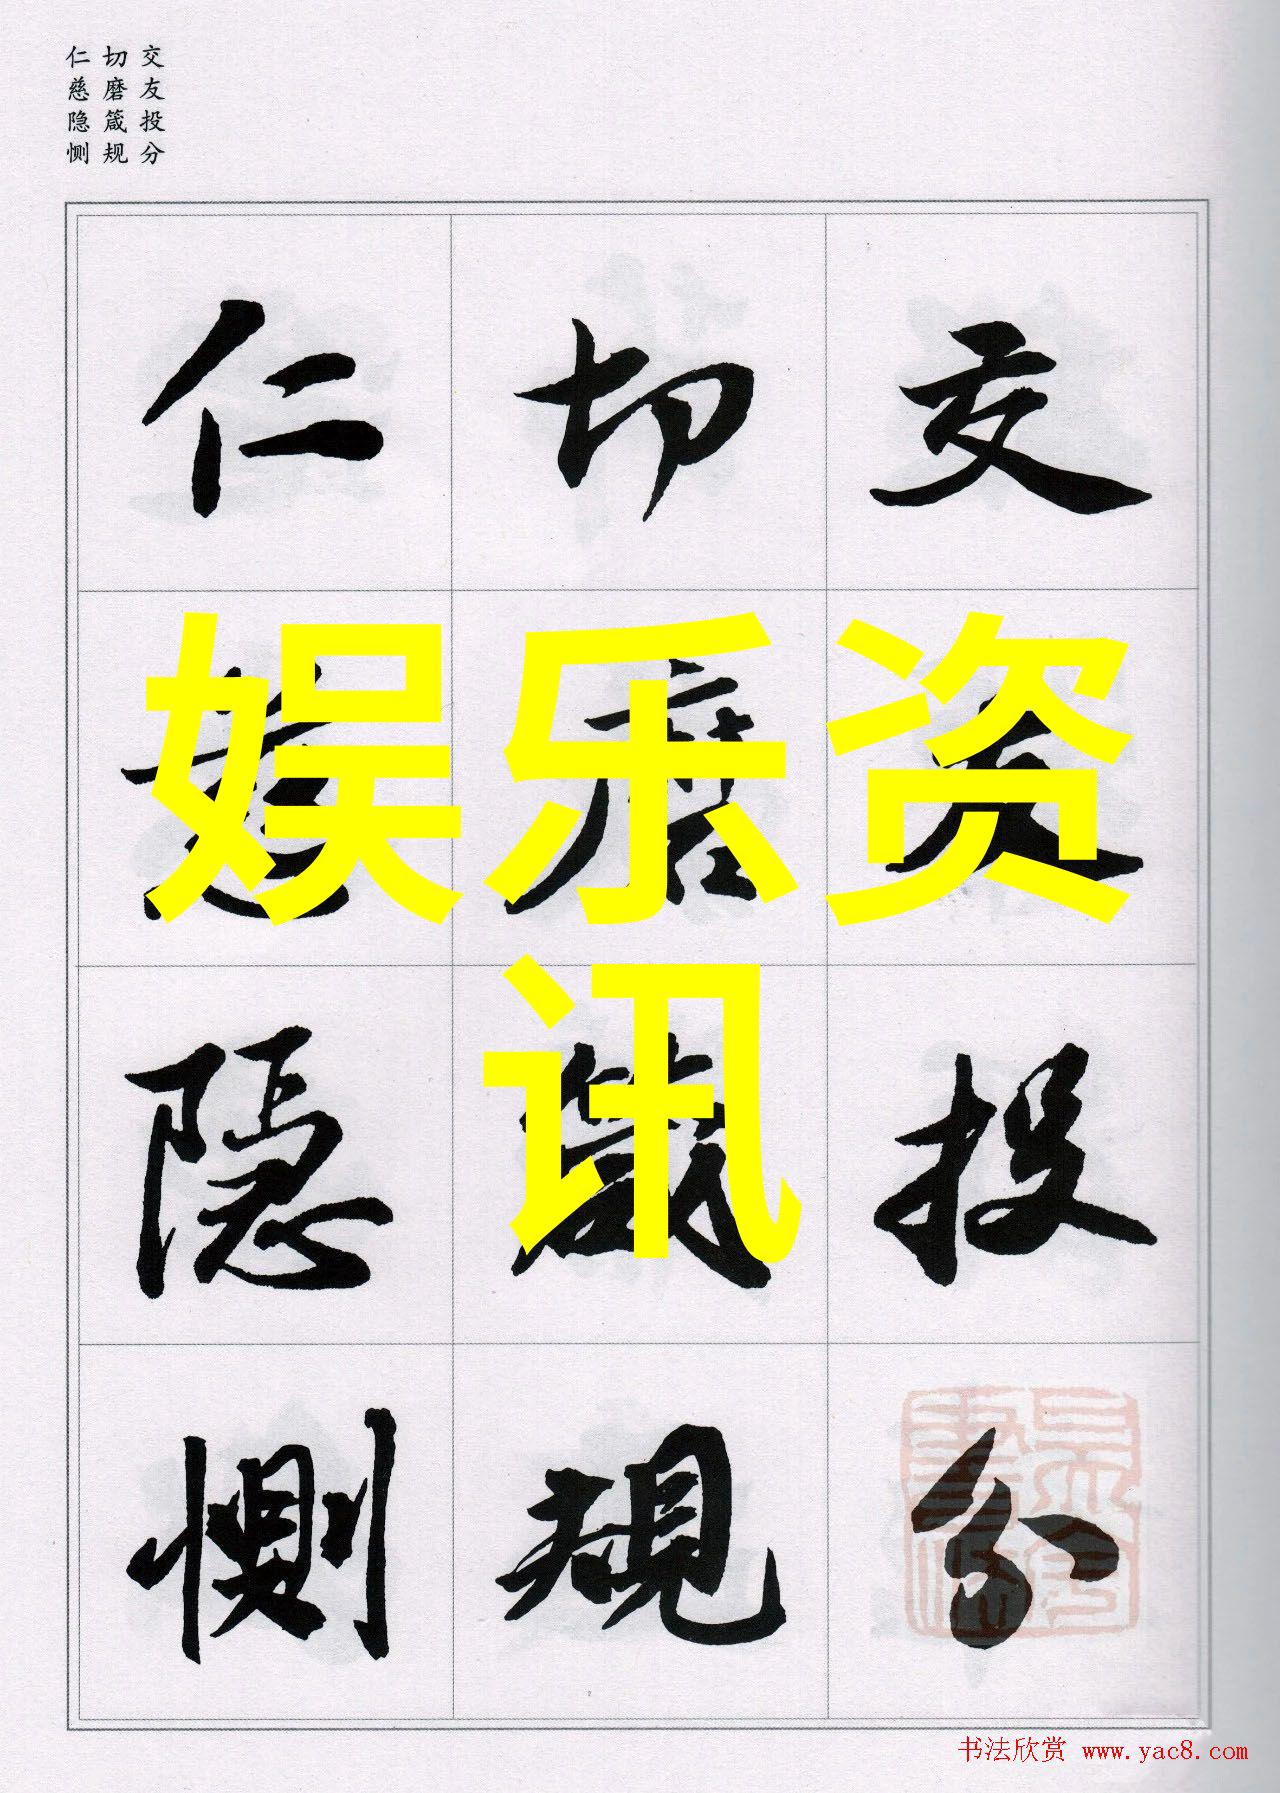 交友投分
切磨箴规
仁慈隐恻
交友投分
切磨箴規
仁慈隱惻
娱乐资
讯
书法欣赏 www.yac8.com